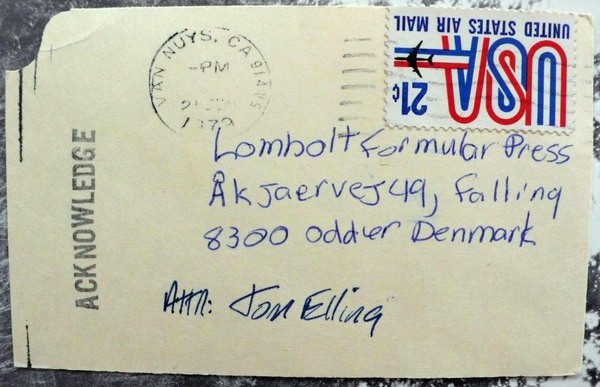 VAN NUYS, CA 914
-PM
1979
UNITED STATES AIR MAIL
USA
21¢
ACKNOWLEDGE
Lombolt Formular Press
Akjaervej 49, Falling
8300 Odder Denmark
Attn: Jon Elling